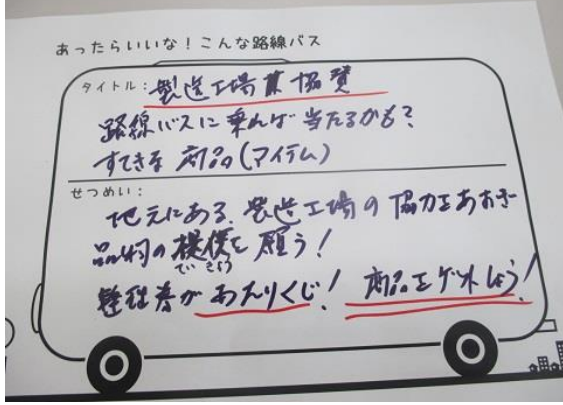 あったらいいな！こんな路線バス
タイトル：製造工場 協賛
路線バスに乗れば当たるかも？
すてきな商品(アイテム)
せつめい：
地元にある、製造工場の協力をあおぎ
品物の提供を願う！
ていきょう
整理券があたりくじ！ 商品をゲットしよう！